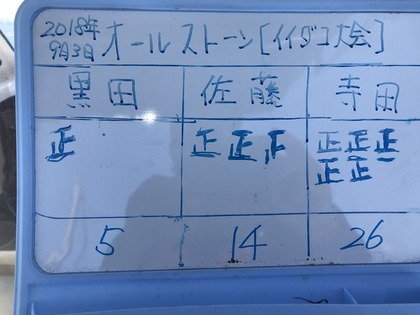 2018年
9月3日
オールストーン[イイダコ大会]
黒田 佐藤 寺田
正 正正正 正正正
正正
5 14 26